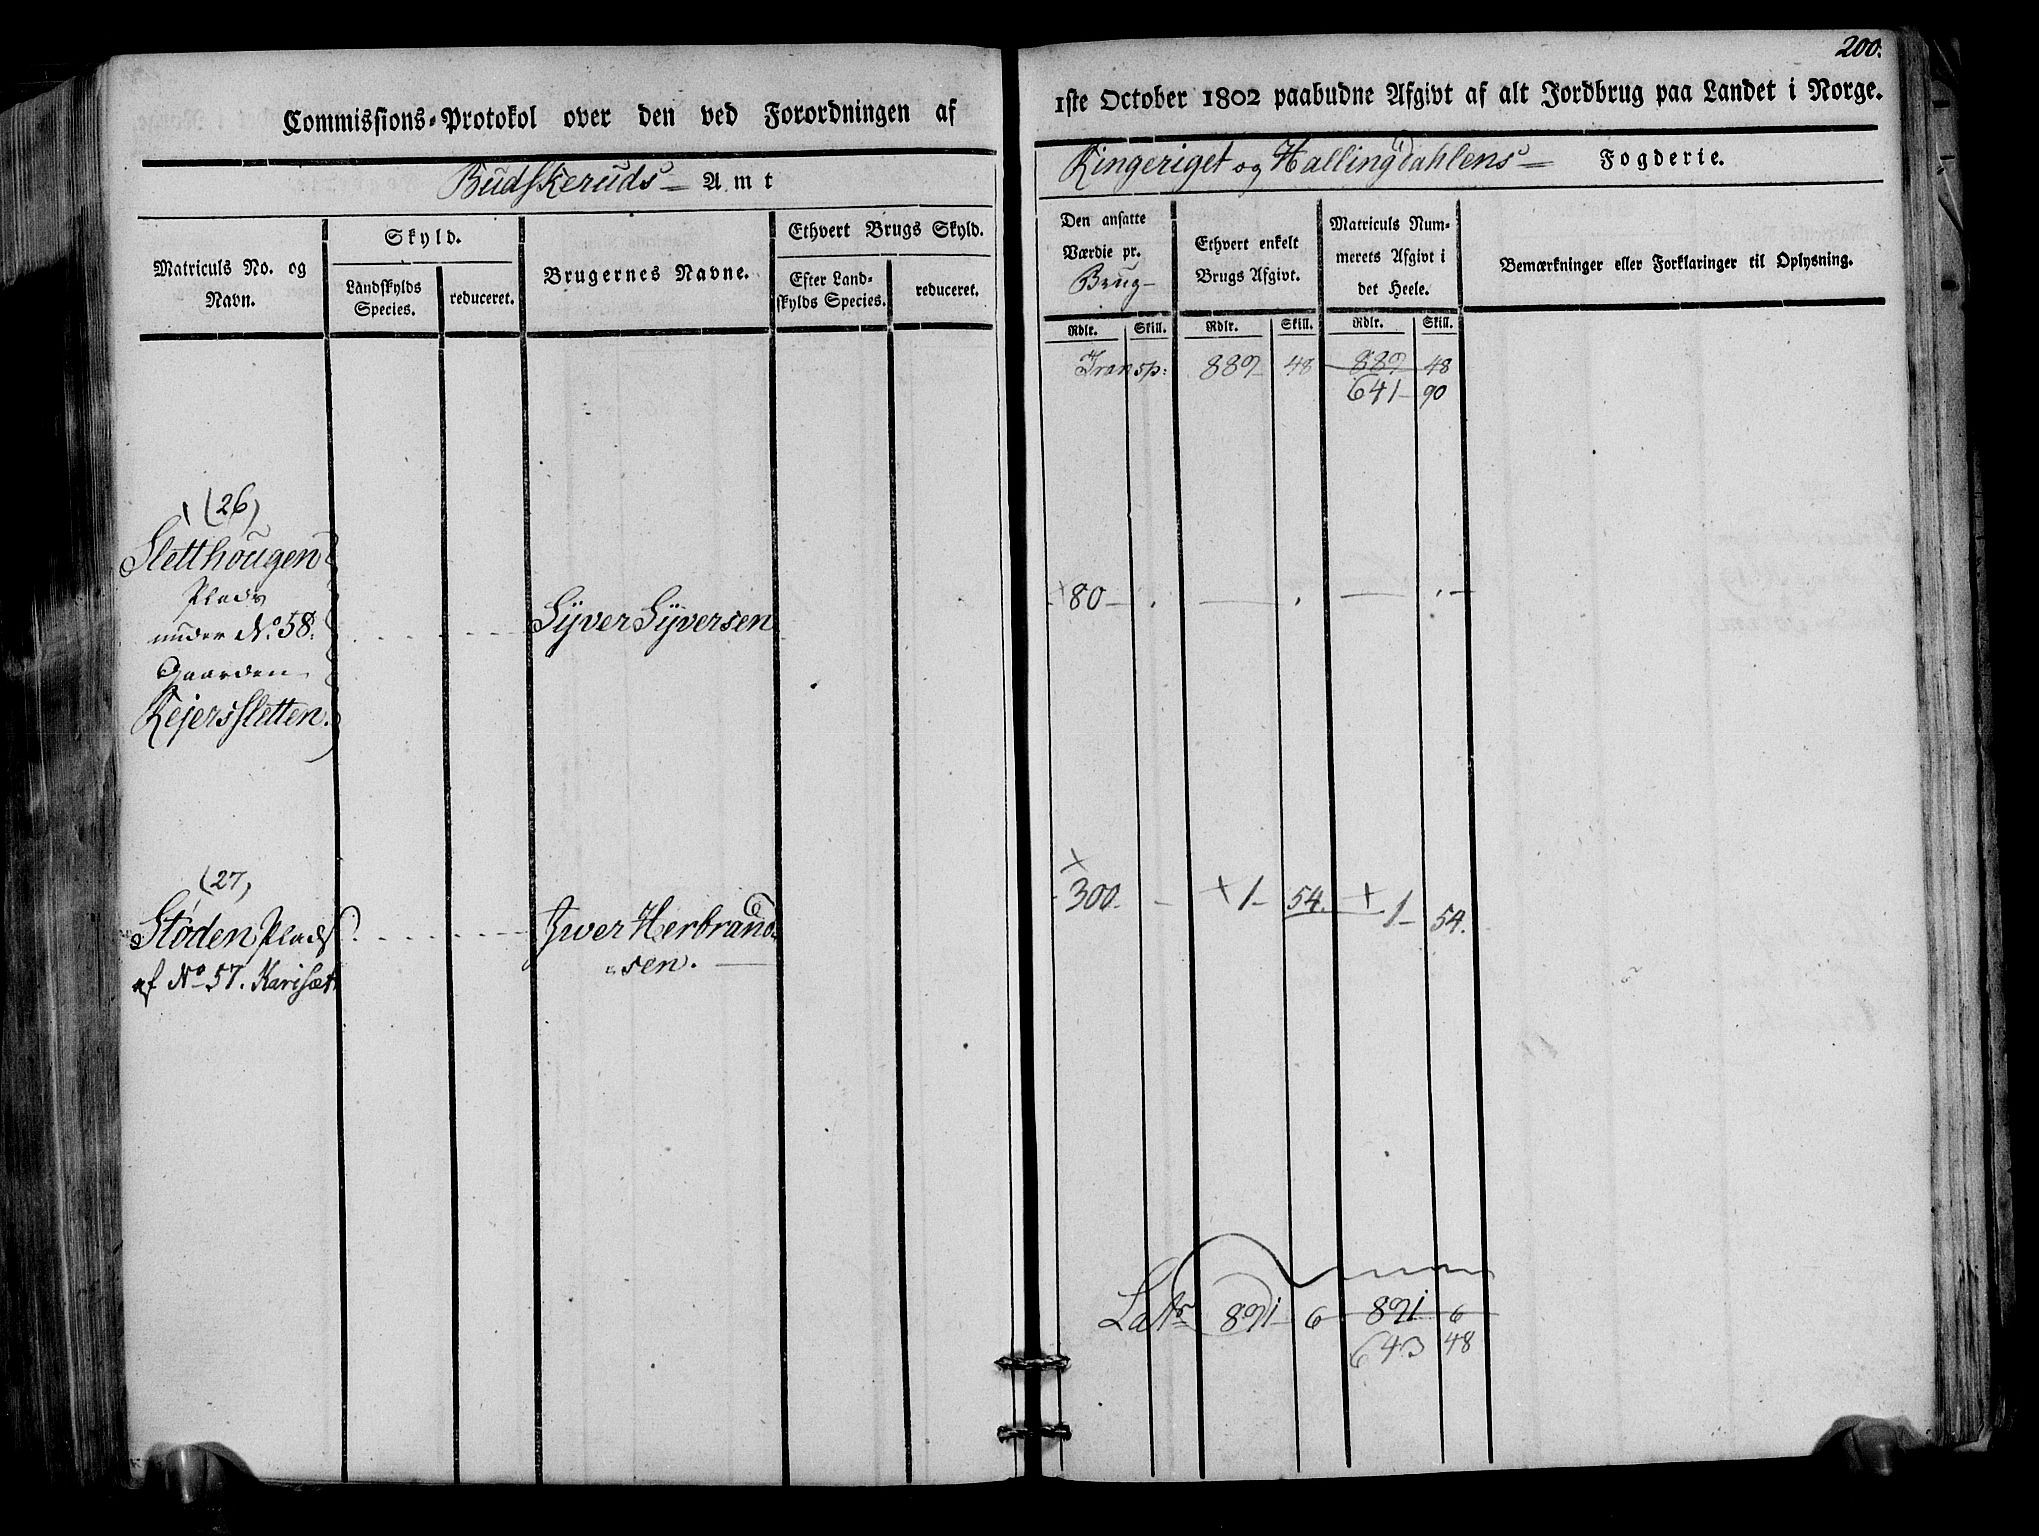 200.
Commissions-Protokol over den ved Forordningen af
1ste October 1802 paabudne Afgivt af alt Jordbrug paa Landet i Norge.
Budskeruds Amt
Ringeriget og Hallingdahlens Fogderie.
Matriculs No. og
Navn.
Skyld.
Landskylds
Species.
reduceret.
Brugernes Navne.
Ethvert Brugs Skyld.
Efter Land-
skylds Species.
reduceret.
Den ansatte
Værdie pr.
Brug
Ethvert enkelt
Brugs Afgivt.
Matriculs Num-
merets Afgivt i
det Heele.
Bemærkninger eller Forklaringer til Oplysning.
Rdlr. Skill. Rdlr. Skill. Rdlr. Skill.
Transp: 889 48 889 48
641 90
(26)
Sletthougen
Plads
under No 58.
Gaarden
Rejersletten.
Syver Syversen
80
(27)
Støden Plads
af No 57. Karisæt
Iver Herbrand
sen.
300 1 54. 1 54.
Lats 891 6 891 6
643 48